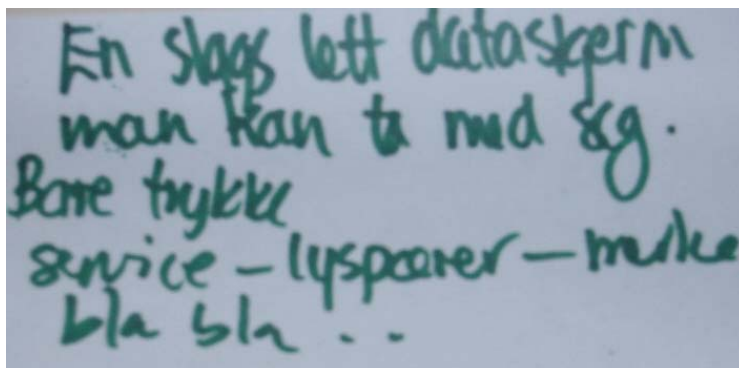 En slags lett dataskjerm
man kan ta med seg.
Bare trykke
service – lyspærer – merke
bla bla . .